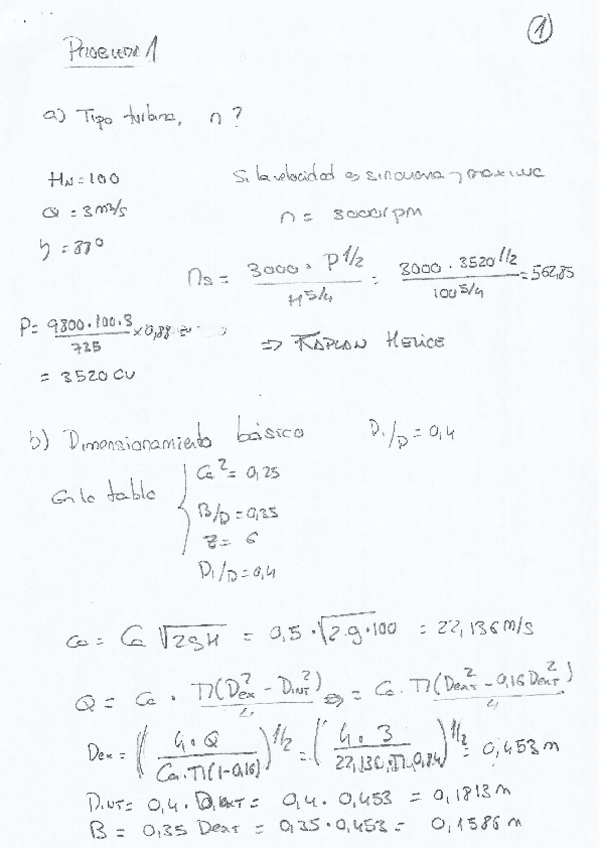 1
PROBLEMA 1
a) Tipo turbina, n?
HN = 100
Si la velocidad es sincrona y maxima
Q = 3 m3/s
n = 3000 rpm
ns = 3000 · P^1/2 / H^5/4 = 3000 · 3520^1/2 / 100^5/4 = 562,85
P = 9800·100·3 / 735 × 0,88
= 3520 CV
⇒ KAPLAN HELICE
b) Dimensionamiento básico D1/D = 0,4
En la tabla
Ca² = 0,25
B/D = 0,35
Z = 6
D1/D = 0,4
ca = Ca √2gH = 0,5 · √2·g·100 = 22,136 m/s
Q = Ca · π(Dex² - DINT²) / 4 ⇒ = Ca · π(DEXT² - 0,16 DEXT²) / 4
Dex = (4·Q / Ca·π(1-0,16))^1/2 = (4·3 / 22,136·π·0,84)^1/2 = 0,453 m
DINT = 0,4 · DEXT = 0,4 · 0,453 = 0,1813 m
B = 0,35 DEXT = 0,35 · 0,453 = 0,1586 m